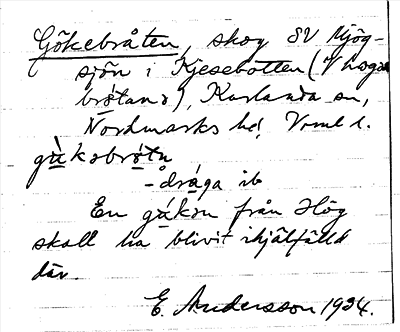 Gökebråten, skog SV Mjög-
sjön i Kjesebotten (V hoga
bròtanə), Karlanda sn,
Nordmarks hd, Vrml l.
gàkəbròtn
-dràga ib
En gåkən från Hög
skall ha blivit ihjälfälld
där.
E. Andersson 1934.